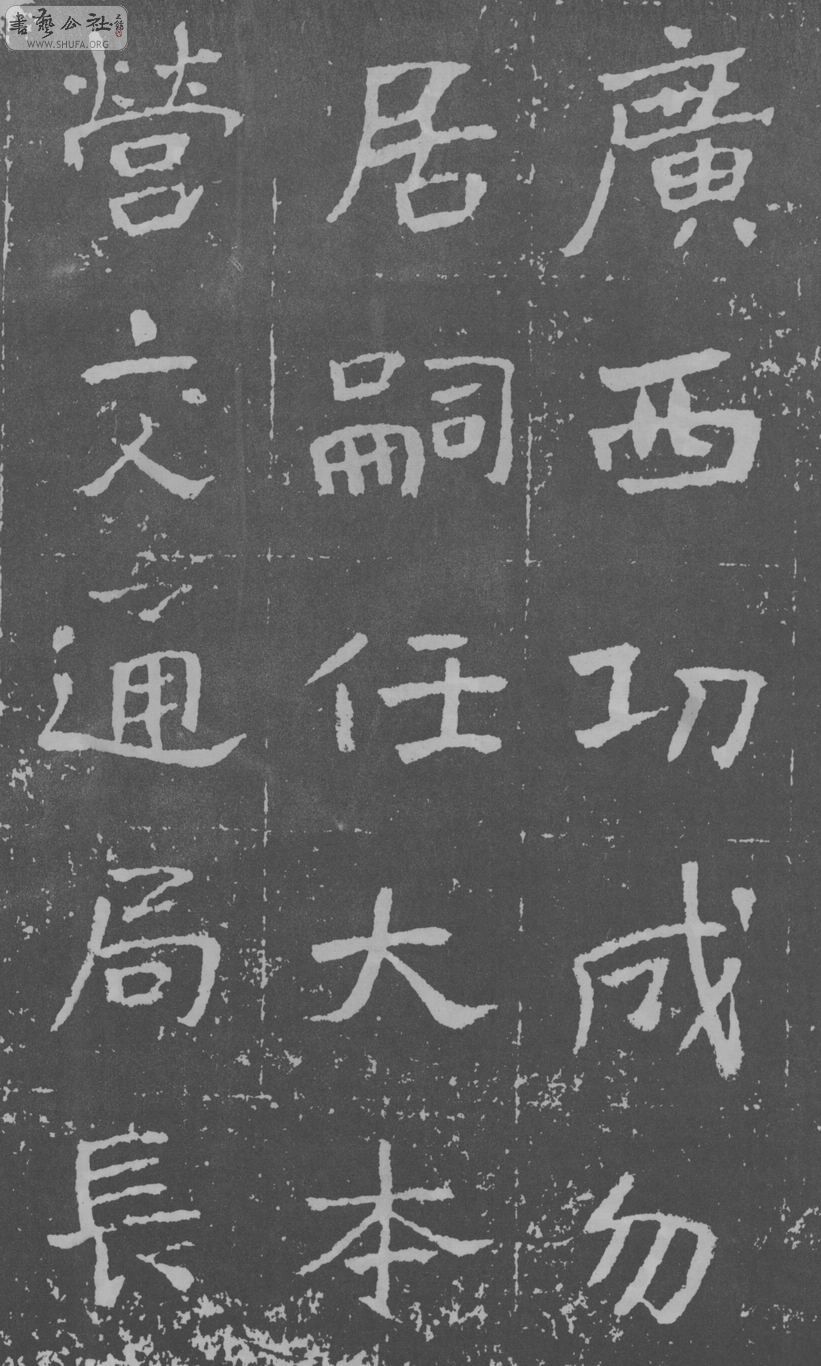 廣西功成勿
居嗣任大本
營交通局長
書藝公社
WWW.SHUFA.ORG